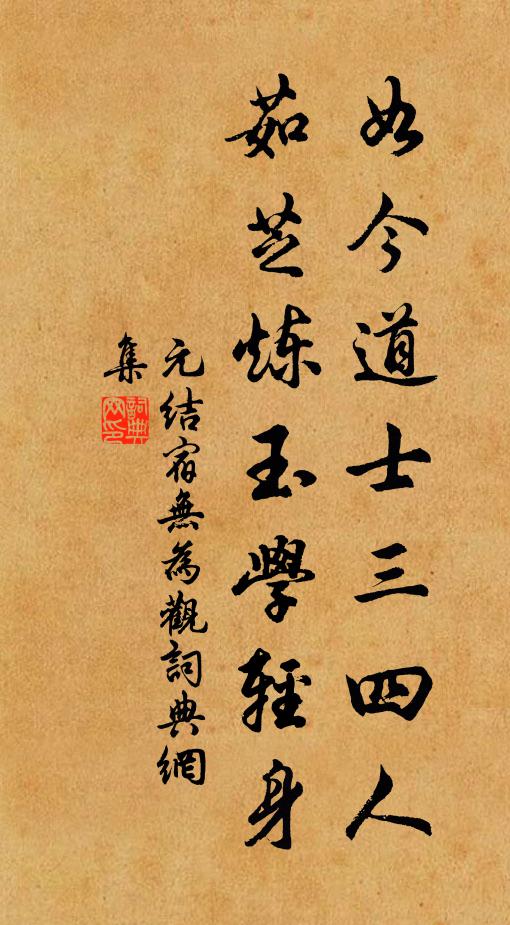 如今道士三四人
茹芝炼玉學輕身
元结宿無為觀詞典網
集
詞典網印